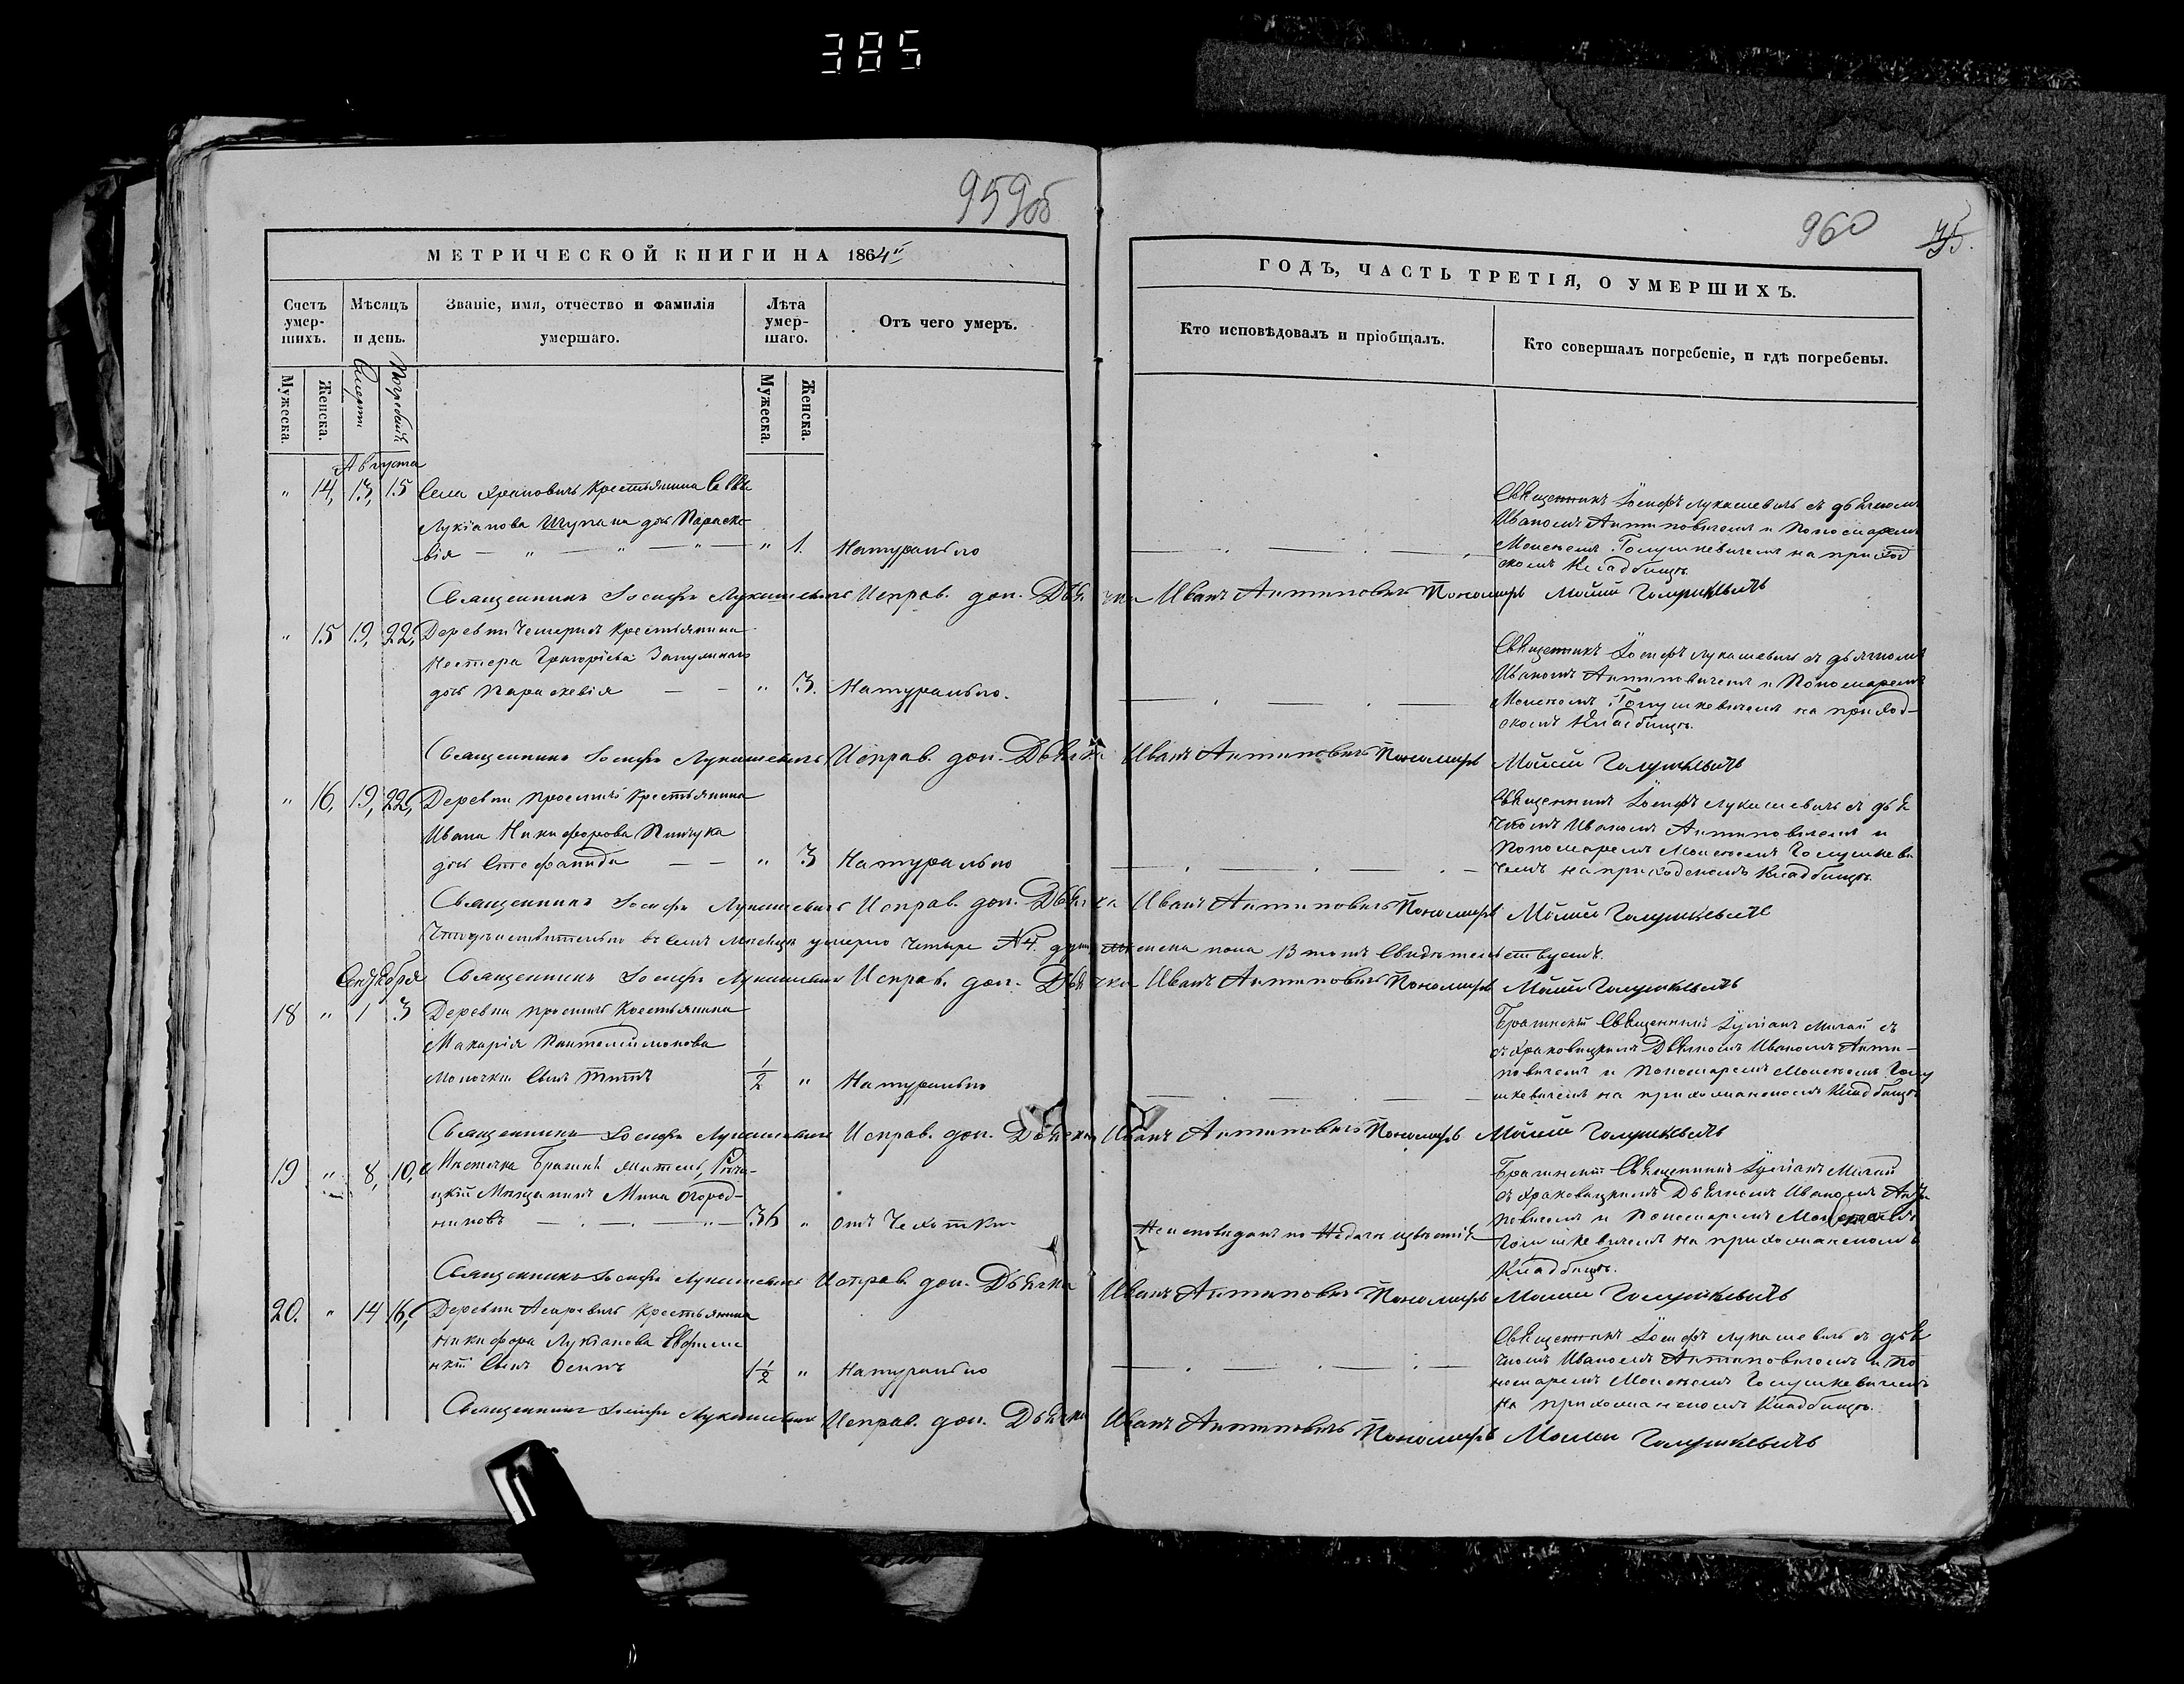 385
959об
960
75.
МЕТРИЧЕСКОЙ КНИГИ НА 1864й
ГОДЪ, ЧАСТЬ ТРЕТІЯ, О УМЕРШИХЪ.
Счетъ умер-шихъ.
Мѣсяцъ и день.
Званіе, имя, отчество и фамилія умершаго.
Лѣта умер-шаго.
Отъ чего умеръ.
Кто исповѣдовалъ и пріобщалъ.
Кто совершалъ погребеніе, и гдѣ погребены.
Мужеска.
Женска.
Смерти
Погребенія
Мужеска.
Женска.
Августа
" 14, 13, 15 Села Храповичь Крестьянина Саввы
Лукіанова дочь Параске-
вія " 1. Натурально
Священникъ Іосифъ Лукашевичъ съ дьячкомъ
Иваномъ Антиповичемъ и Пономаремъ
Моисеемъ Голушкевичемъ на приход
скомъ Кладбищѣ.
Священникъ Іосифъ Лукашевичъ Исправ. дол. Дьячка Иванъ Антиповичъ Пономарь Моисей Голушкевичъ
" 15 19, 22, Деревни Крестьянина
Нестера Григоріева
дочь Параскевія " 3. Натурально.
Священникъ Іосифъ Лукашевичъ съ дьячкомъ
Иваномъ Антиповичемъ и Пономаремъ
Моисеемъ Голушкевичемъ на приход-
скомъ Кладбищѣ.
Священникъ Іосифъ Лукашевичъ Исправ. дол. Дьячка Иванъ Антиповичъ Пономарь Моисей Голушкевичъ
" 16, 19, 22, Деревни Крестьянина
Ивана Никифорова Пинчука
дочь Стефанида " 3 Натурально
Священникъ Іосифъ Лукашевичъ съ дья
чкомъ Иваномъ Антиповичемъ и
Пономаремъ Моисеемъ Голушкеви
чемъ на приходскомъ Кладбищѣ.
Священникъ Іосифъ Лукашевичъ Исправ. дол. Дьячка Иванъ Антиповичъ Пономарь Моисей Голушкевичъ
Что дѣйствительно въ семъ мѣсяцѣ умерло четыре №4. душ женска пола В томъ Свидѣтельствуемъ.
Сентября Священникъ Іосифъ Лукашевичъ Исправ. дол. Дьячка Иванъ Антиповичъ Пономарь Моисей Голушкевичъ
18 " 1 3 Деревни Крестьянина
Макарія Пантелеимонова
Сынъ Титъ 1/2 " Натурально
Брагинскій Священникъ
съ Храковицкимъ Дьячкомъ Иваномъ Анти-
повичемъ и Пономаремъ Моисеемъ Голу
шкевичемъ на прихожанскомъ Кладбищѣ
Священникъ Іосифъ Лукашевичъ Исправ. дол. Дьячка Иванъ Антиповичъ Пономарь Моисей Голушкевичъ
19 " 8, 10, Мѣстечка Брагинъ житель, Рѣчи-
цкій Мѣщанинъ Мина Огород-
никовъ 36 " отъ Чехотки
Неисповѣданъ по Недачѣ извѣстія
Брагинскій Священникъ
съ Храковицкимъ Дьячкомъ Иваномъ Анти
повичемъ и Пономаремъ Моисеемъ
Голушкевичемъ на прихожанскомъ
Кладбищѣ.
Священникъ Іосифъ Лукашевичъ Исправ. дол. Дьячка Иванъ Антиповичъ Пономарь Моисей Голушкевичъ
20. " 14 16, Деревни Крестьянина
Никифора Лукіанова
Сынъ Осипъ 1 1/2 " Натурально
Священникъ Іосифъ Лукашевичъ съ дья
чкомъ Иваномъ Антиповичемъ и По
номаремъ Моисеемъ Голушкевичемъ
на прихожанскомъ Кладбищѣ.
Священникъ Іосифъ Лукашевичъ Исправ. дол. Дьячка Иванъ Антиповичъ Пономарь Моисей Голушкевичъ